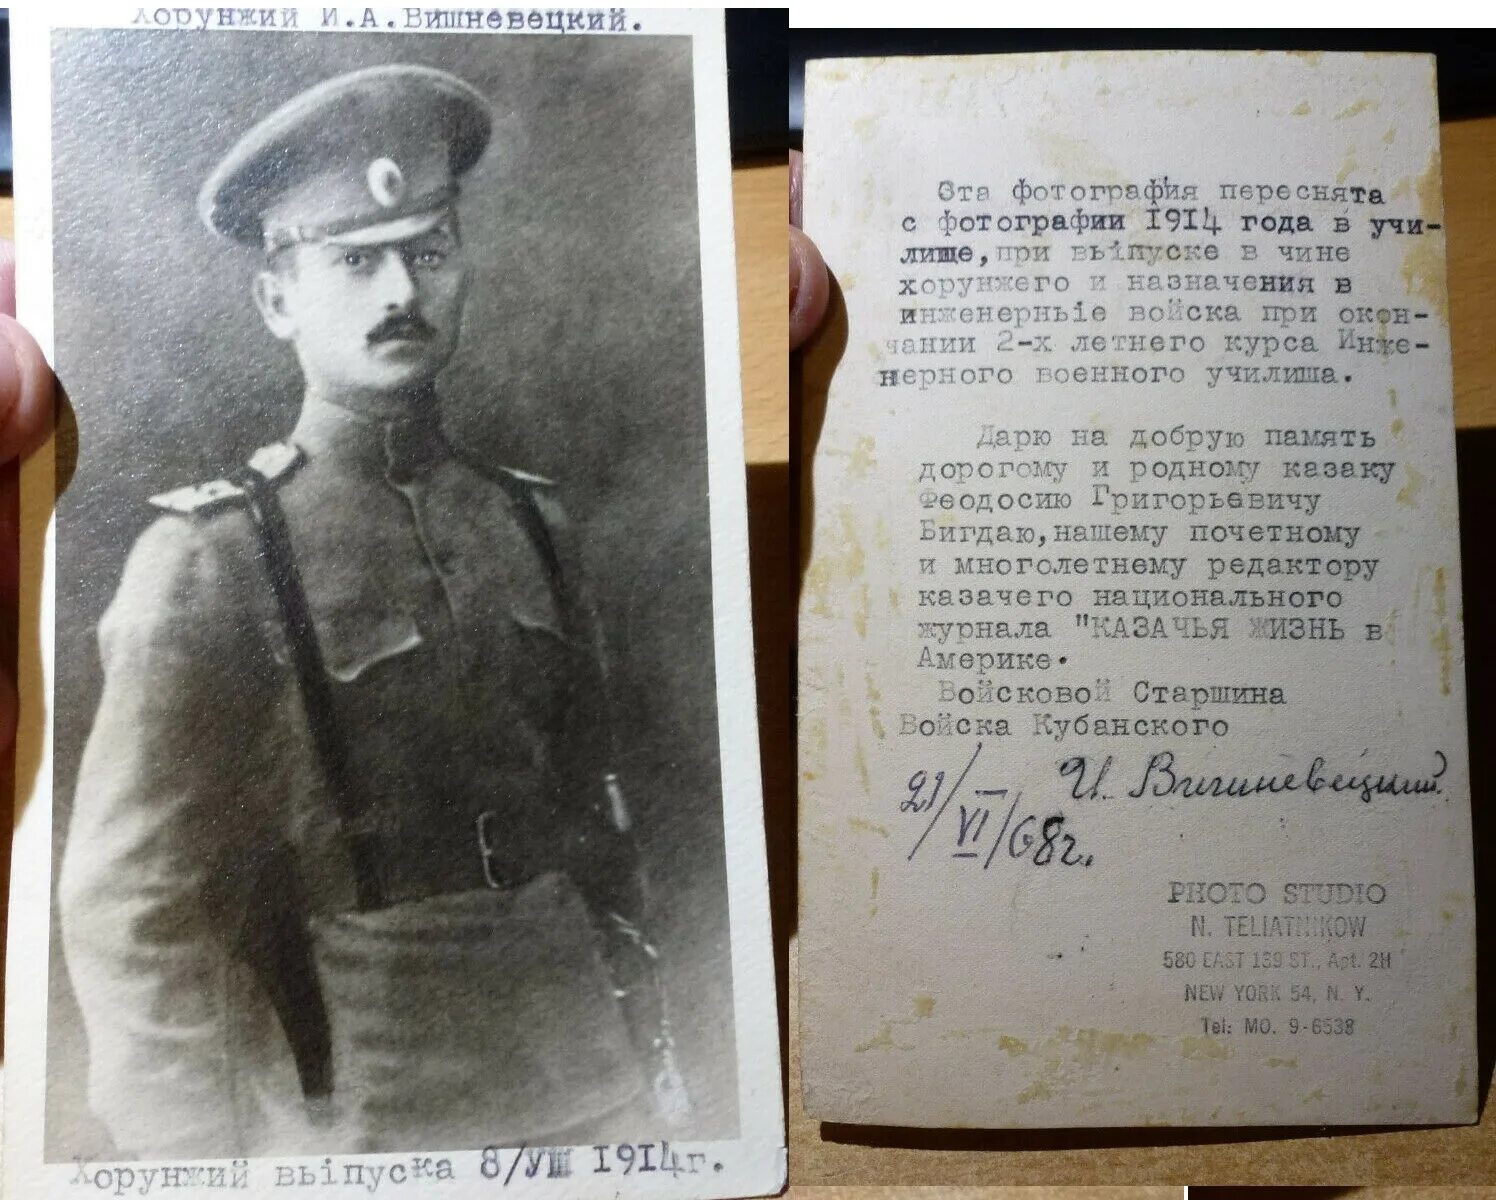 Хорунжий И.А.Вишневецкий.
Хорунжий выпуска 8/VIII 1914г.
Эта фотография переснята
с фотографии 1914 года в учи-
лище,при выпуске в чине
хорунжего и назначения в
инженерные войска при окон-
чании 2-х летнего курса Инже-
нерного военного училиша.
Дарю на добрую память
дорогому и родному казаку
Феодосию Григорьевичу
Бигдаю,нашему почетному
и многолетнему редактору
казачего национального
журнала "КАЗАЧЬЯ ЖИЗНЬ в
Америке.
Войсковой Старшина
Войска Кубанского
И. Вишневецкий
21/VI/68г.
PHOTO STUDIO
N. TELIATNIKOW
580 EAST 139 ST., Apt. 2H
NEW YORK 54, N. Y.
Tel: MO. 9-6538